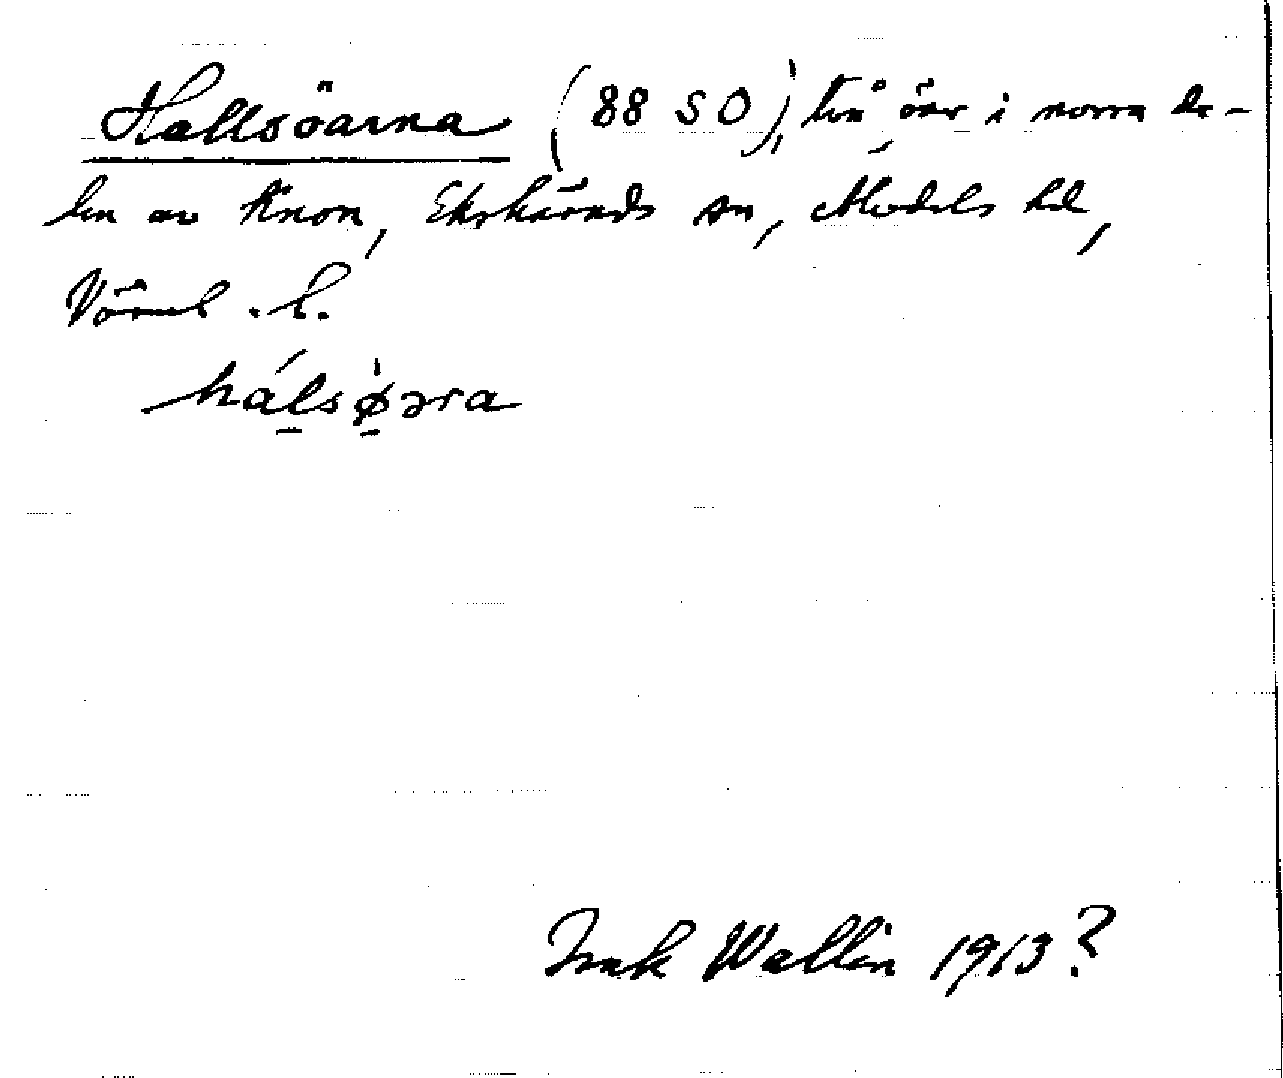 Hallsöarna (88 SO), två öar i norra de-
len av Knon, Ekshärads sn, Älvdals hd,
Värml. l.
hálsø̀əra
Isak Wallin 1913?